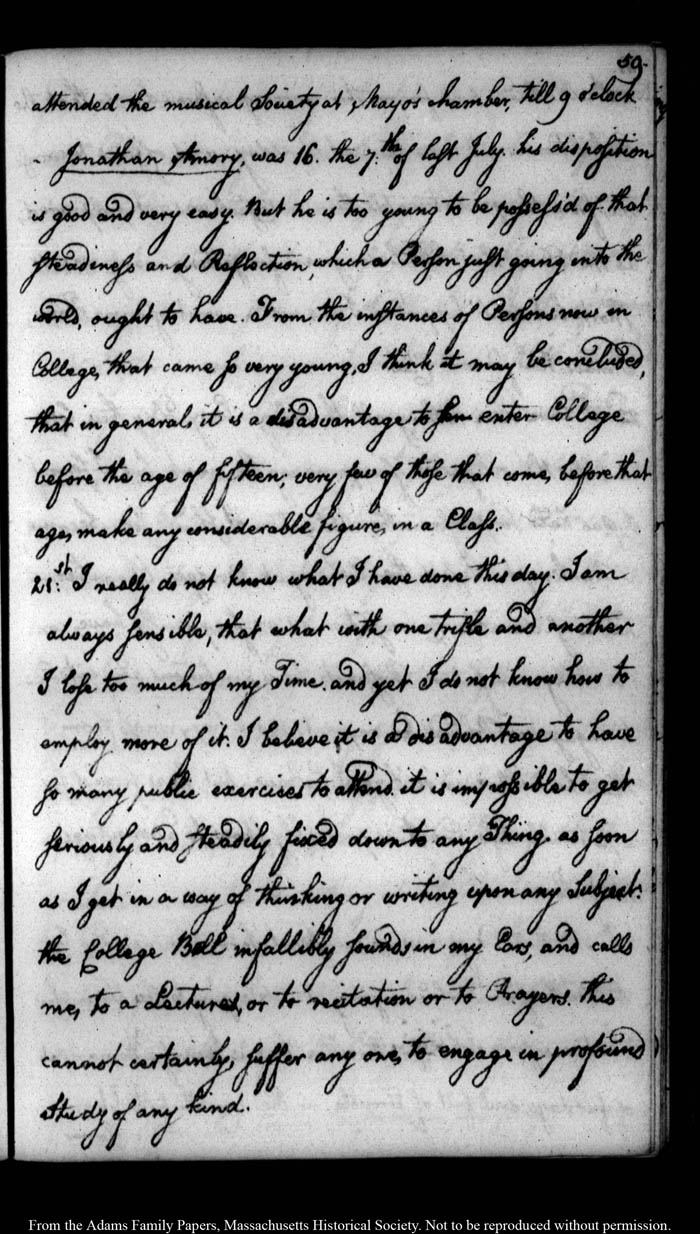 59.
attended the musical Society at Mayo's chamber, till 9 o'clock
- Jonathan Amory, was 16. the 7.th of last July. his disposition
is good and very easy. But he is too young to be possess'd of that
steadiness and Reflection, which a Person just going into the
world, ought to have. From the instances of Persons now in
College, that came so very young, I think it may be concluded,
that in general, it is a disadvantage to enter College
before the age of fifteen; very few of those that come, before that
age, make any considerable figure, in a Class.
21:st I really do not know what I have done this day. I am
always sensible, that what with one trifle and another
I lose too much of my Time. and yet I do not know how to
employ more of it. I believe it is a disadvantage to have
so many public exercises to attend. it is impossible to get
seriously and steadily fixed down to any Thing. as soon
as I get in a way of thinking or writing upon any Subject.
the College Bell infallibly sounds in my Ears, and calls
me, to a Lecture, or to recitation or to Prayers. this
cannot certainly, suffer any one, to engage in profound
study of any kind.
From the Adams Family Papers, Massachusetts Historical Society. Not to be reproduced without permission.